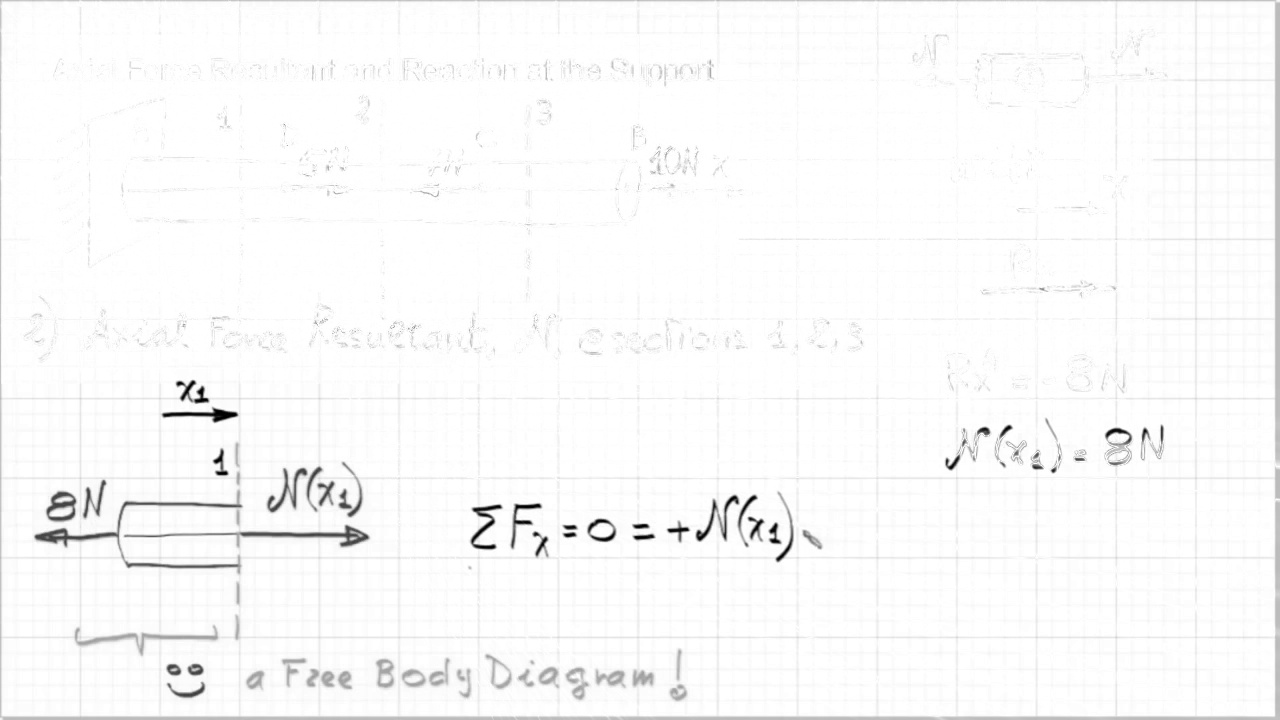 Axial Force Resultant and Reaction at the Support
N N
1 2 3
D C B
5N 7N 10N x
x
2) Axial Force Resultant, N, @ sections 1, 2, 3
Rx = -8N
x1
N(x1) = 8N
1
8N N(x1)
ΣFx = 0 = +N(x1)
a Free Body Diagram!